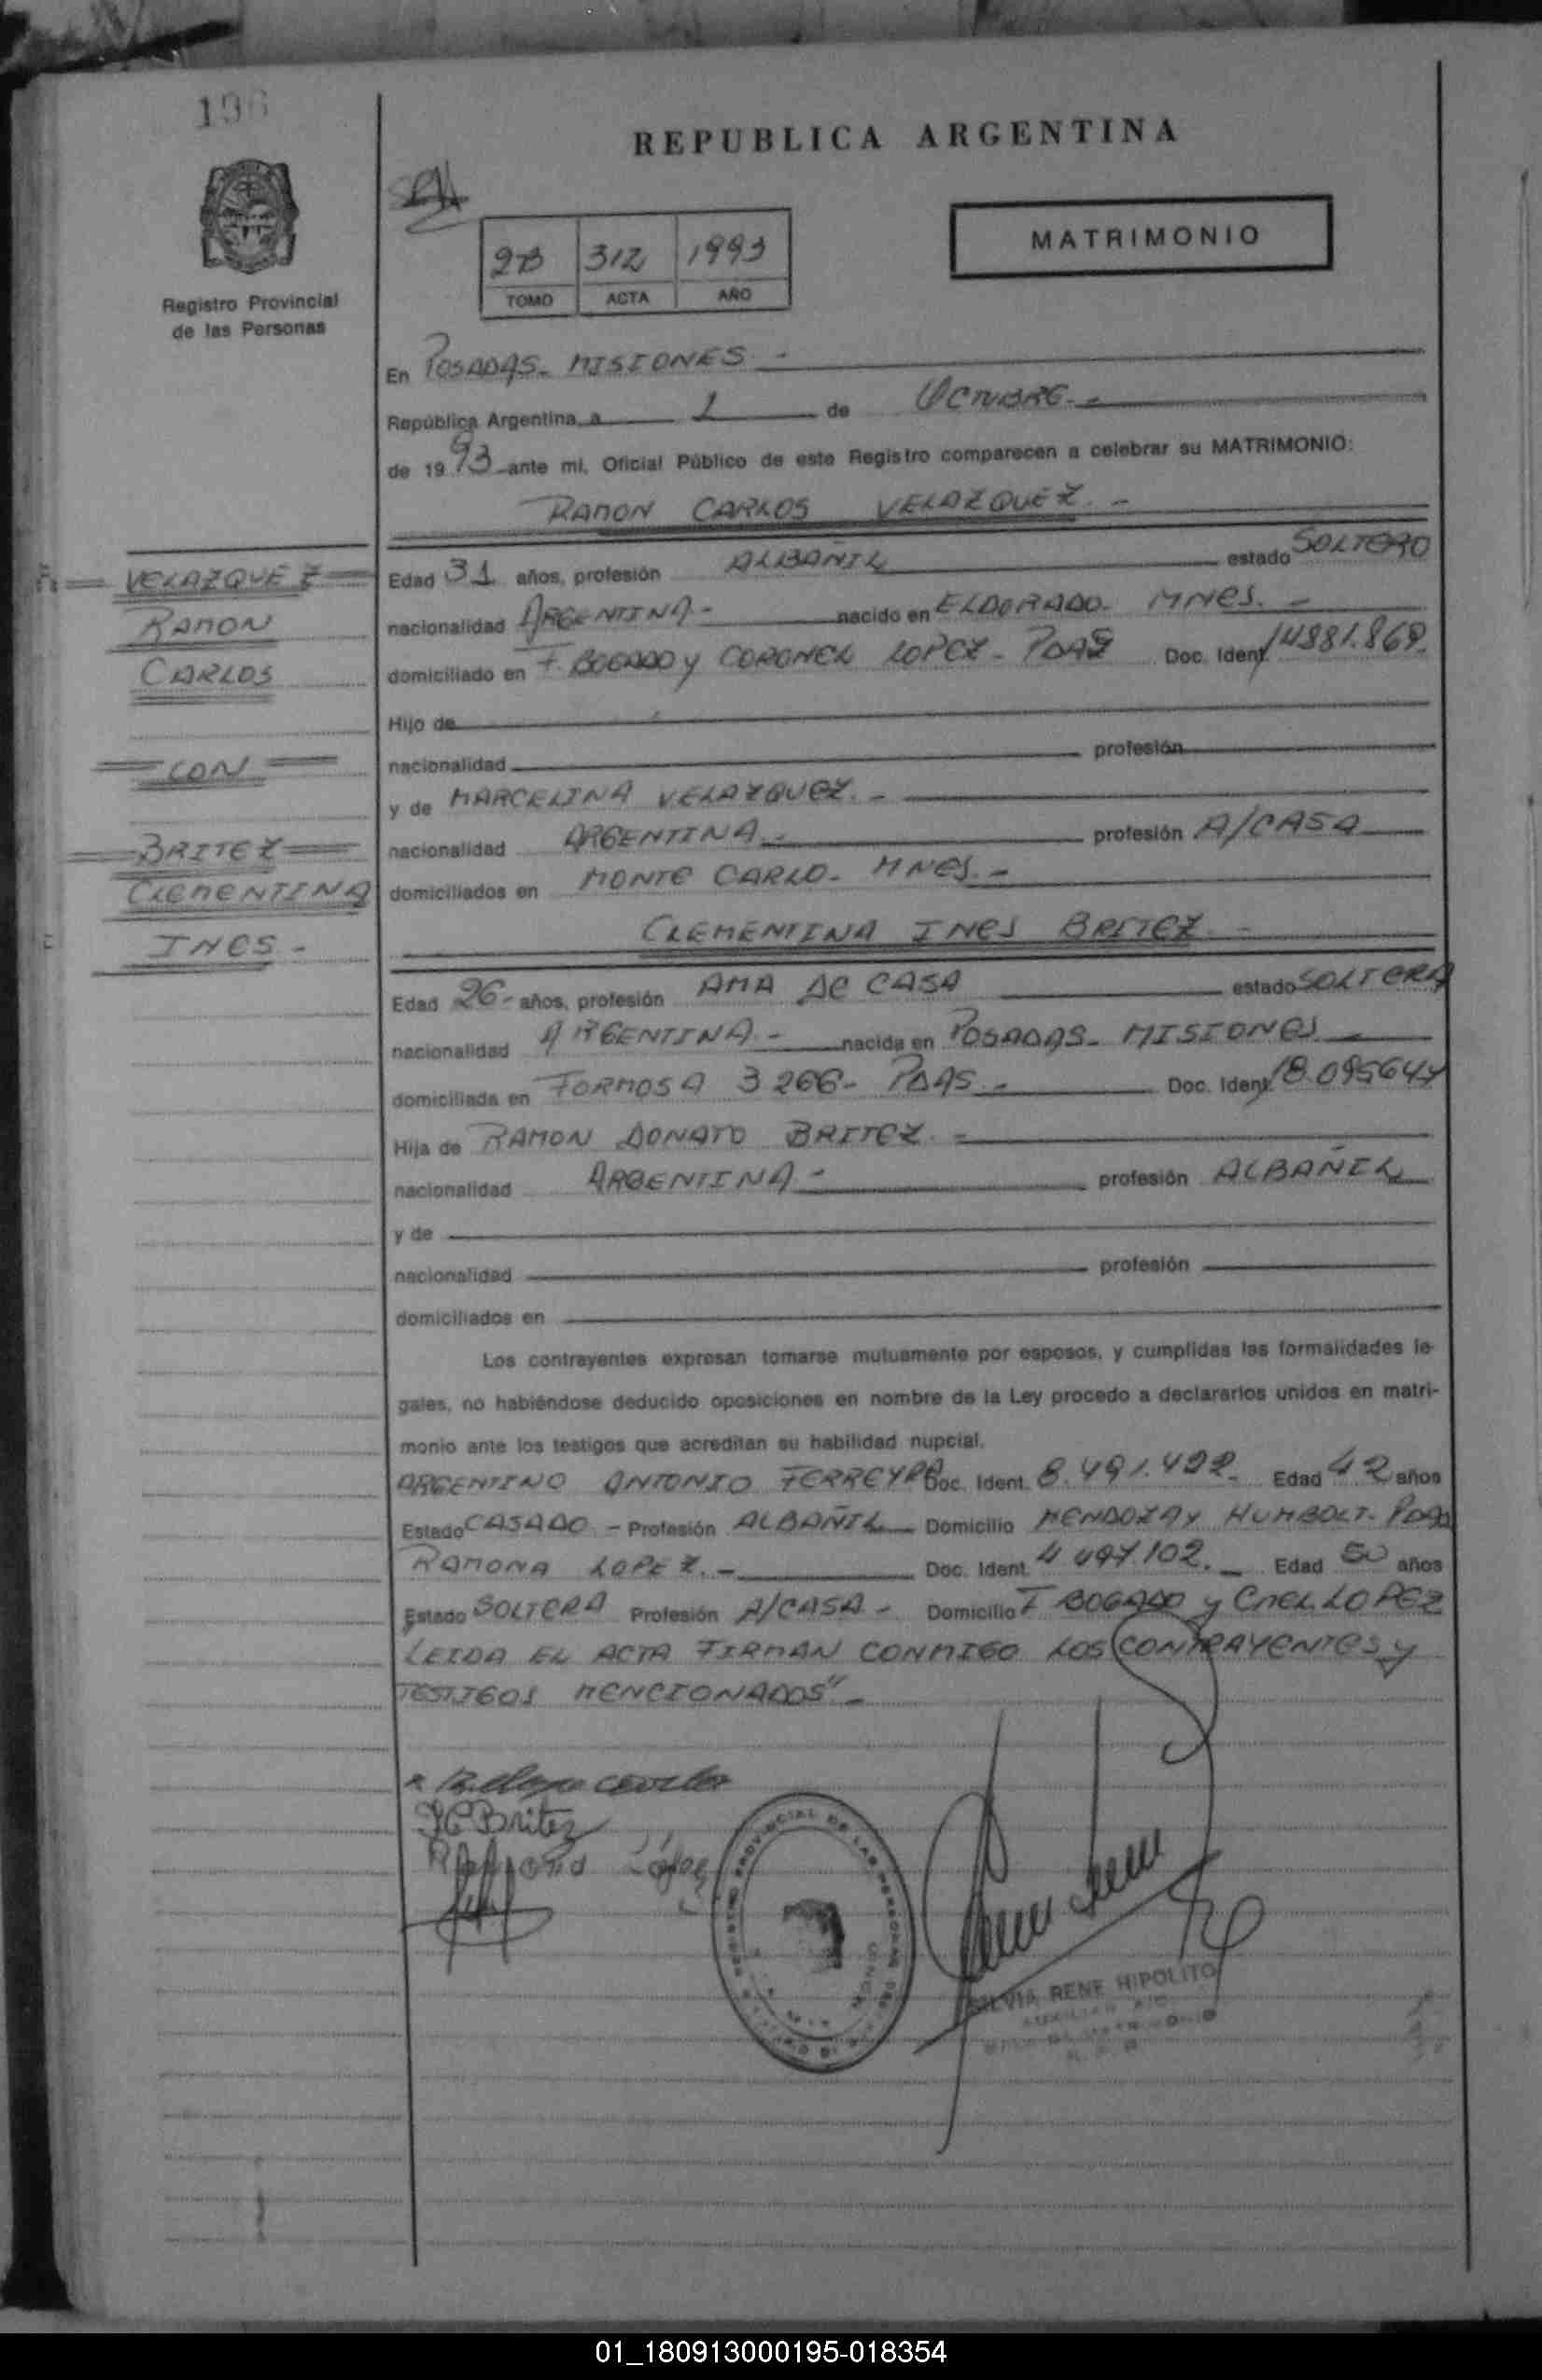 196
REPUBLICA ARGENTINA
MATRIMONIO
2B 312 1993
TOMO ACTA AÑO
Registro Provincial
de las Personas
En POSADAS- MISIONES.-
República Argentina, a 1 de OCTUBRE.-
de 1993 ante mi, Oficial Público de este Registro comparecen a celebrar su MATRIMONIO:
RAMON CARLOS VELAZQUEZ.-
VELAZQUEZ
RAMON
CARLOS
CON
BRITEZ
CLEMENTINA
INES-
Edad 31 años, profesión ALBAÑIL estado SOLTERO
nacionalidad ARGENTINA- nacido en ELDORADO- MNES.-
domiciliado en F. BOGADO y CORONEL LOPEZ- PDAS Doc. Ident. 14881.869.
Hijo de
nacionalidad profesión
y de MARCELINA VELAZQUEZ.-
nacionalidad ARGENTINA.- profesión A/CASA
domiciliados en MONTE CARLO- MNES.-
CLEMENTINA INES BRITEZ.-
Edad 26- años, profesión AMA DE CASA estado SOLTERA
nacionalidad ARGENTINA.- nacida en POSADAS- MISIONES
domiciliada en FORMOSA 3266- PDAS.- Doc. Ident. 18.095644
Hija de RAMON DONATO BRITEZ.-
nacionalidad ARGENTINA- profesión ALBAÑIL
y de
nacionalidad profesión
domiciliados en
Los contrayentes expresan tomarse mutuamente por esposos, y cumplidas las formalidades le-
gales, no habiéndose deducido oposiciones en nombre de la Ley procedo a declararlos unidos en matri-
monio ante los testigos que acreditan su habilidad nupcial.
ARGENTINO ANTONIO FERREYRA Doc. Ident. 8.491.422- Edad 42 años
Estado CASADO - Profesión ALBAÑIL Domicilio MENDOZA y HUMBOLT- PDAS
RAMONA LOPEZ.- Doc. Ident. 4 497.102.- Edad 50 años
Estado SOLTERA Profesión A/CASA- Domicilio F BOGADO y CNEL LOPEZ
LEIDA EL ACTA FIRMAN CONMIGO LOS CONTRAYENTES y
TESTIGOS MENCIONADOS"-
Britez
Ramona López
REGISTRO PROVINCIAL DE LAS PERSONAS
SILVIA RENE HIPOLITO
01_180913000195-018354